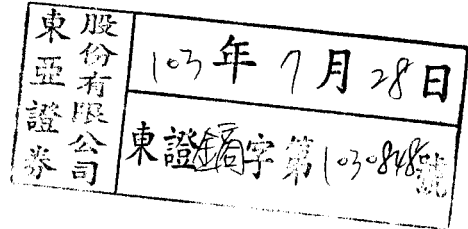 東亞證券
股份有限公司
103年7月28日
東證鏋字第1030848號